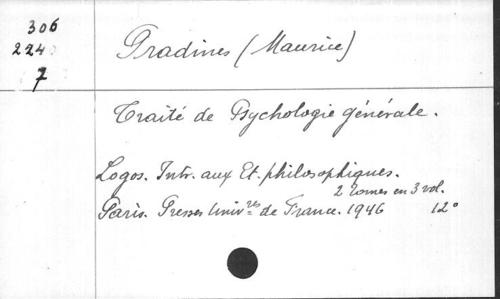 306
224
7
Pradines (Maurice)
Traité de Psychologie générale.
Logos. Intr. aux Et. philosophiques.
2 tomes en 3 vol.
Paris. Presses Univ^res de France. 1946 12°